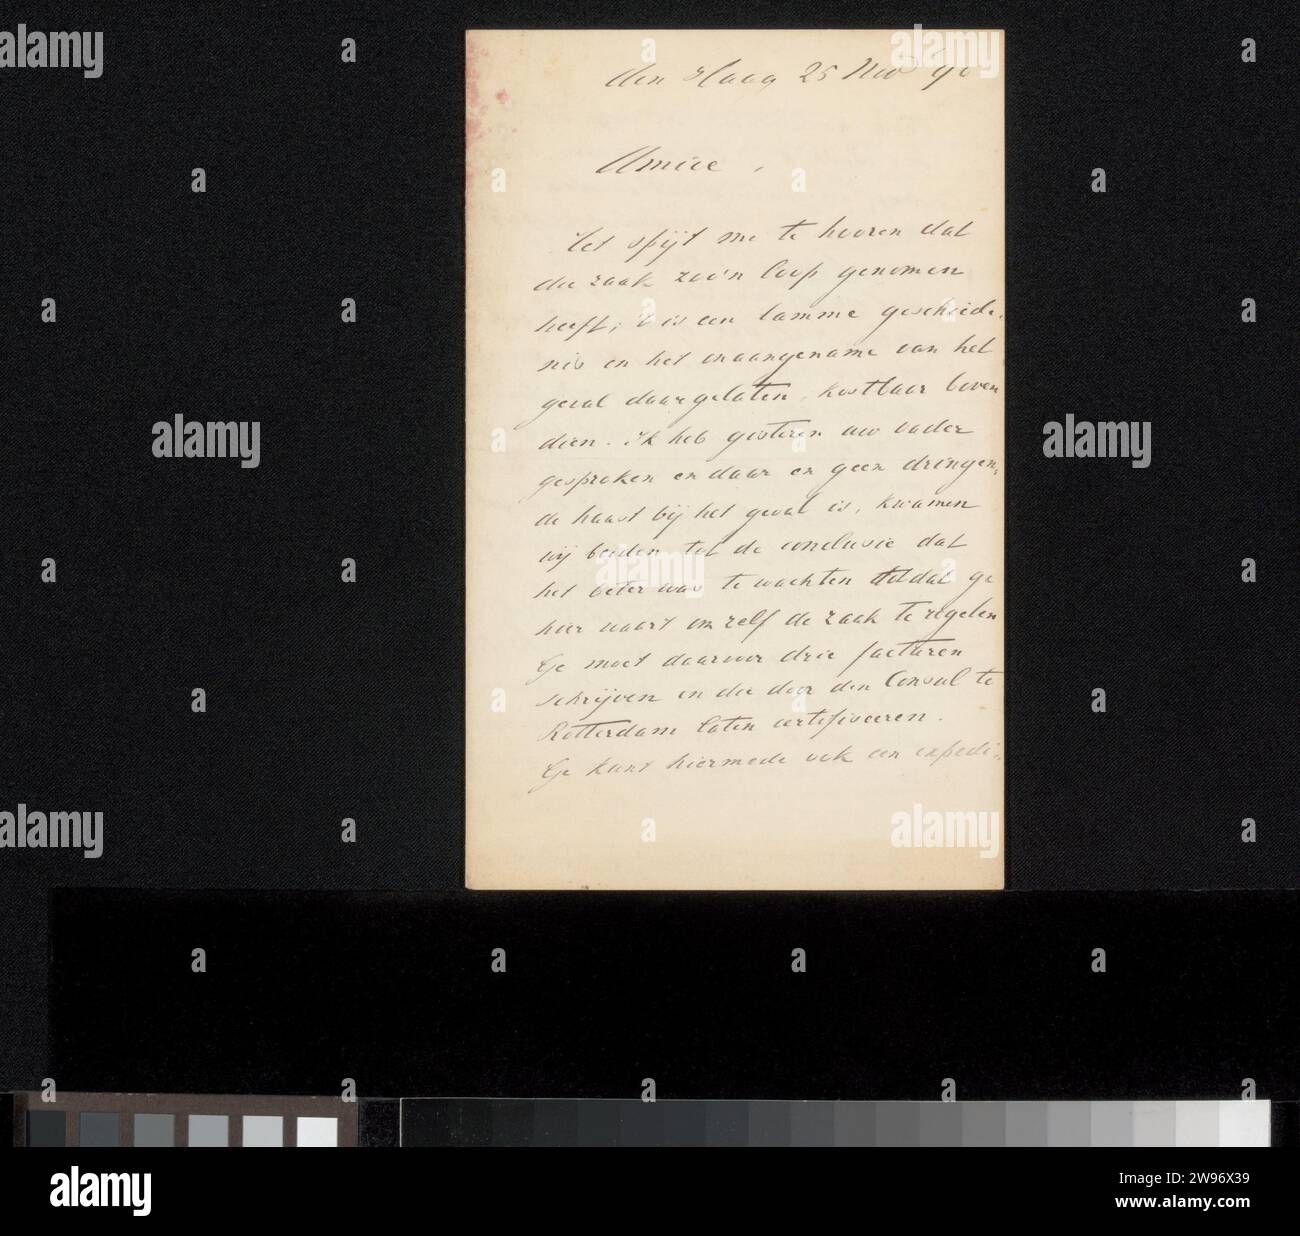 den Haag 25 Nov '90
Amice,
Het spijt me te hooren dat
die zaak zoo'n loop genomen
heeft, 't is een lamme geschiede-
nis en het onaangename van het
geval daargelaten, kostbaar boven
dien. Ik heb gisteren uw vader
gesproken en daar er geen dringen-
de haast bij het geval is, kwamen
wij beiden tot de conclusie dat
het beter was te wachten totdat ge
hier waart om zelf de zaak te regelen
Ge moet daarvoor drie facturen
schrijven en die door den Consul te
Rotterdam laten certifiseeren.
Ge kunt hiermede ook een expedi-
alamy
alamy
alamy
alamy
alamy
alamy
alamy
Image ID: 2W96X39
www.alamy.com